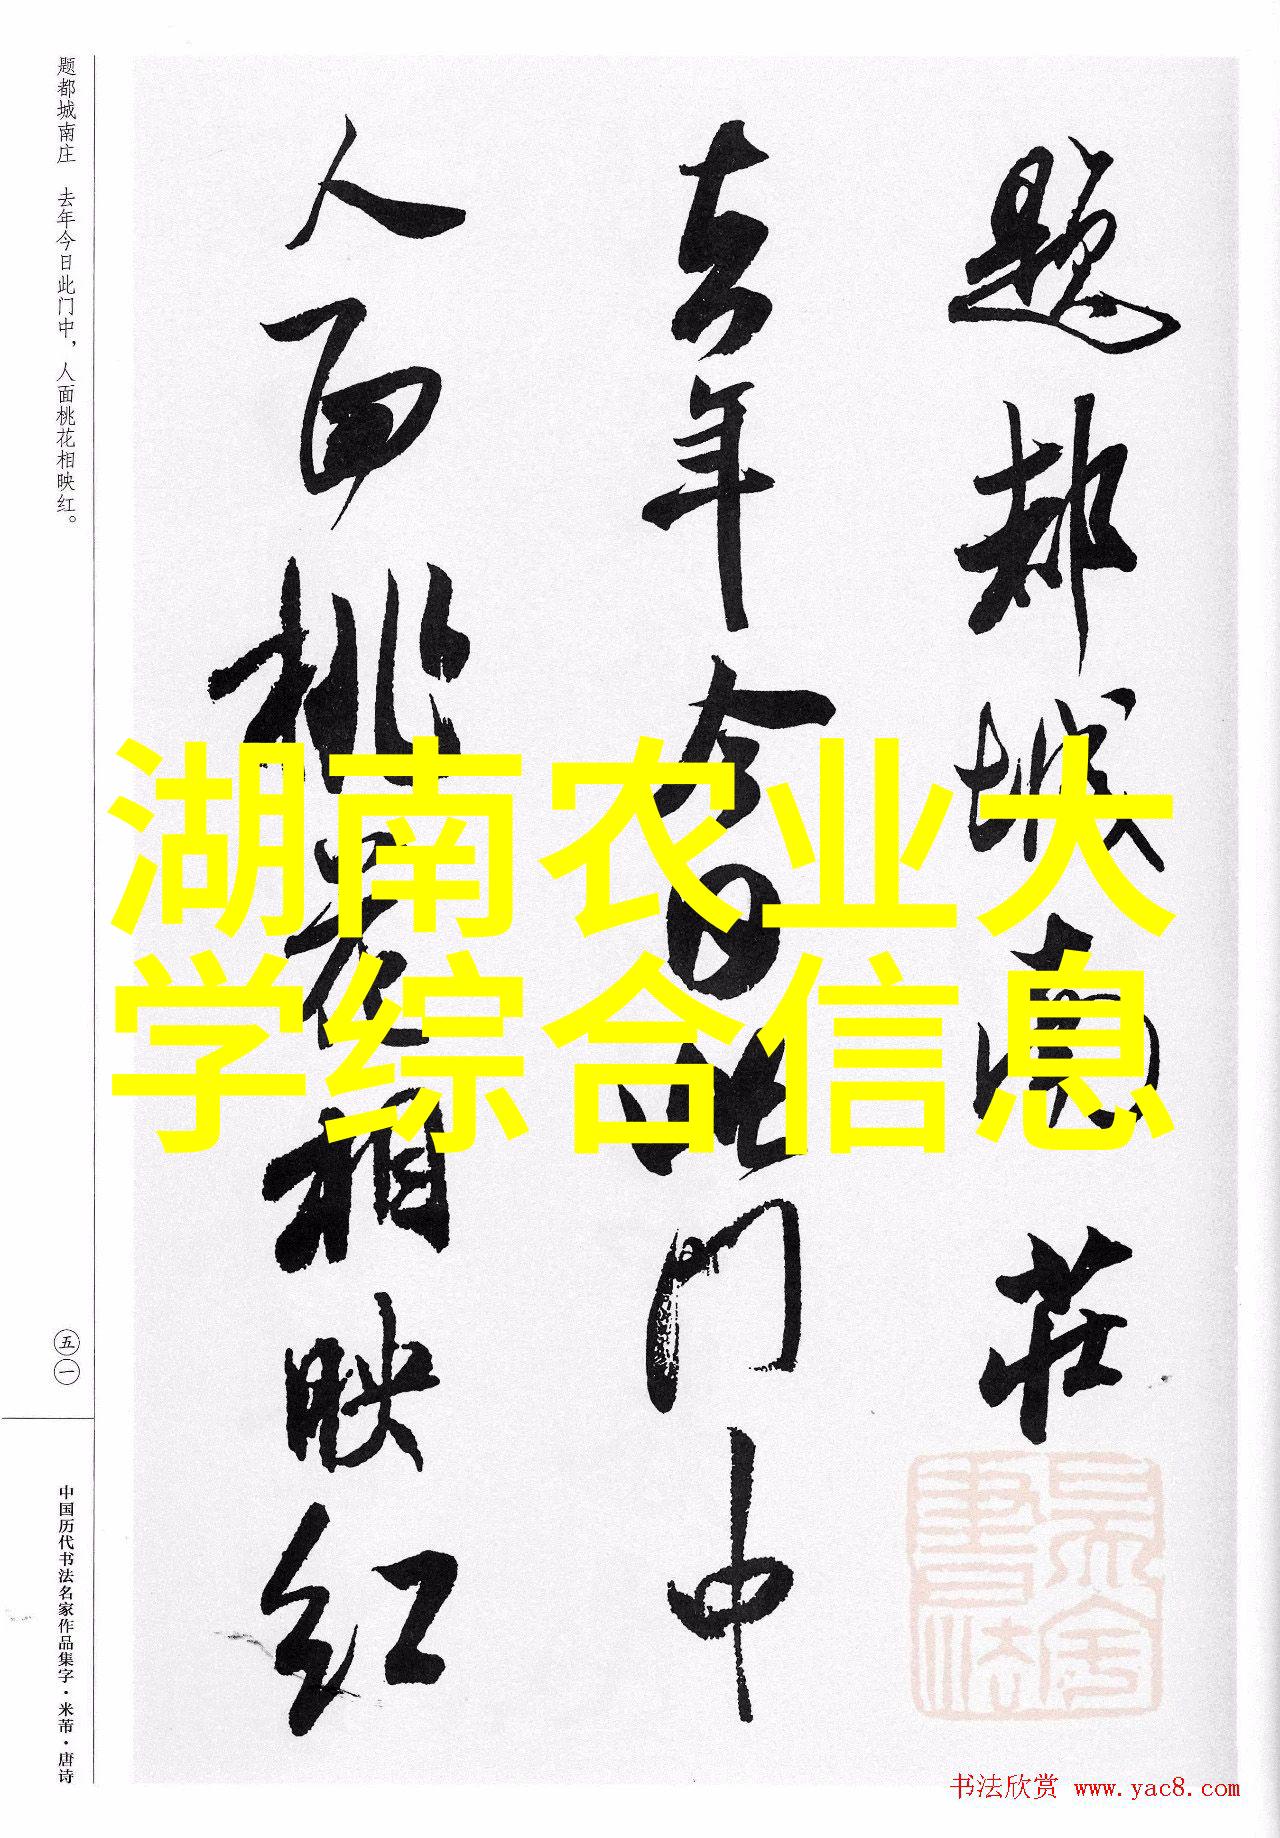 题都城南庄 去年今日此门中，人面桃花相映红。
五一
中国历代书法名家作品集字·米芾·唐诗
题都城南莊
去年今日此门中
人面桃花相映红
湖南农业大
学综合信息
書法欣赏 www.yac8.com